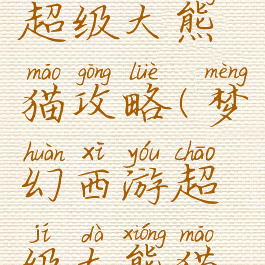 超级大熊
māo gōng lüè mèng
猫攻略(梦
huàn xī yóu chāo
幻西游超
jí dà xióng māo
级大熊猫